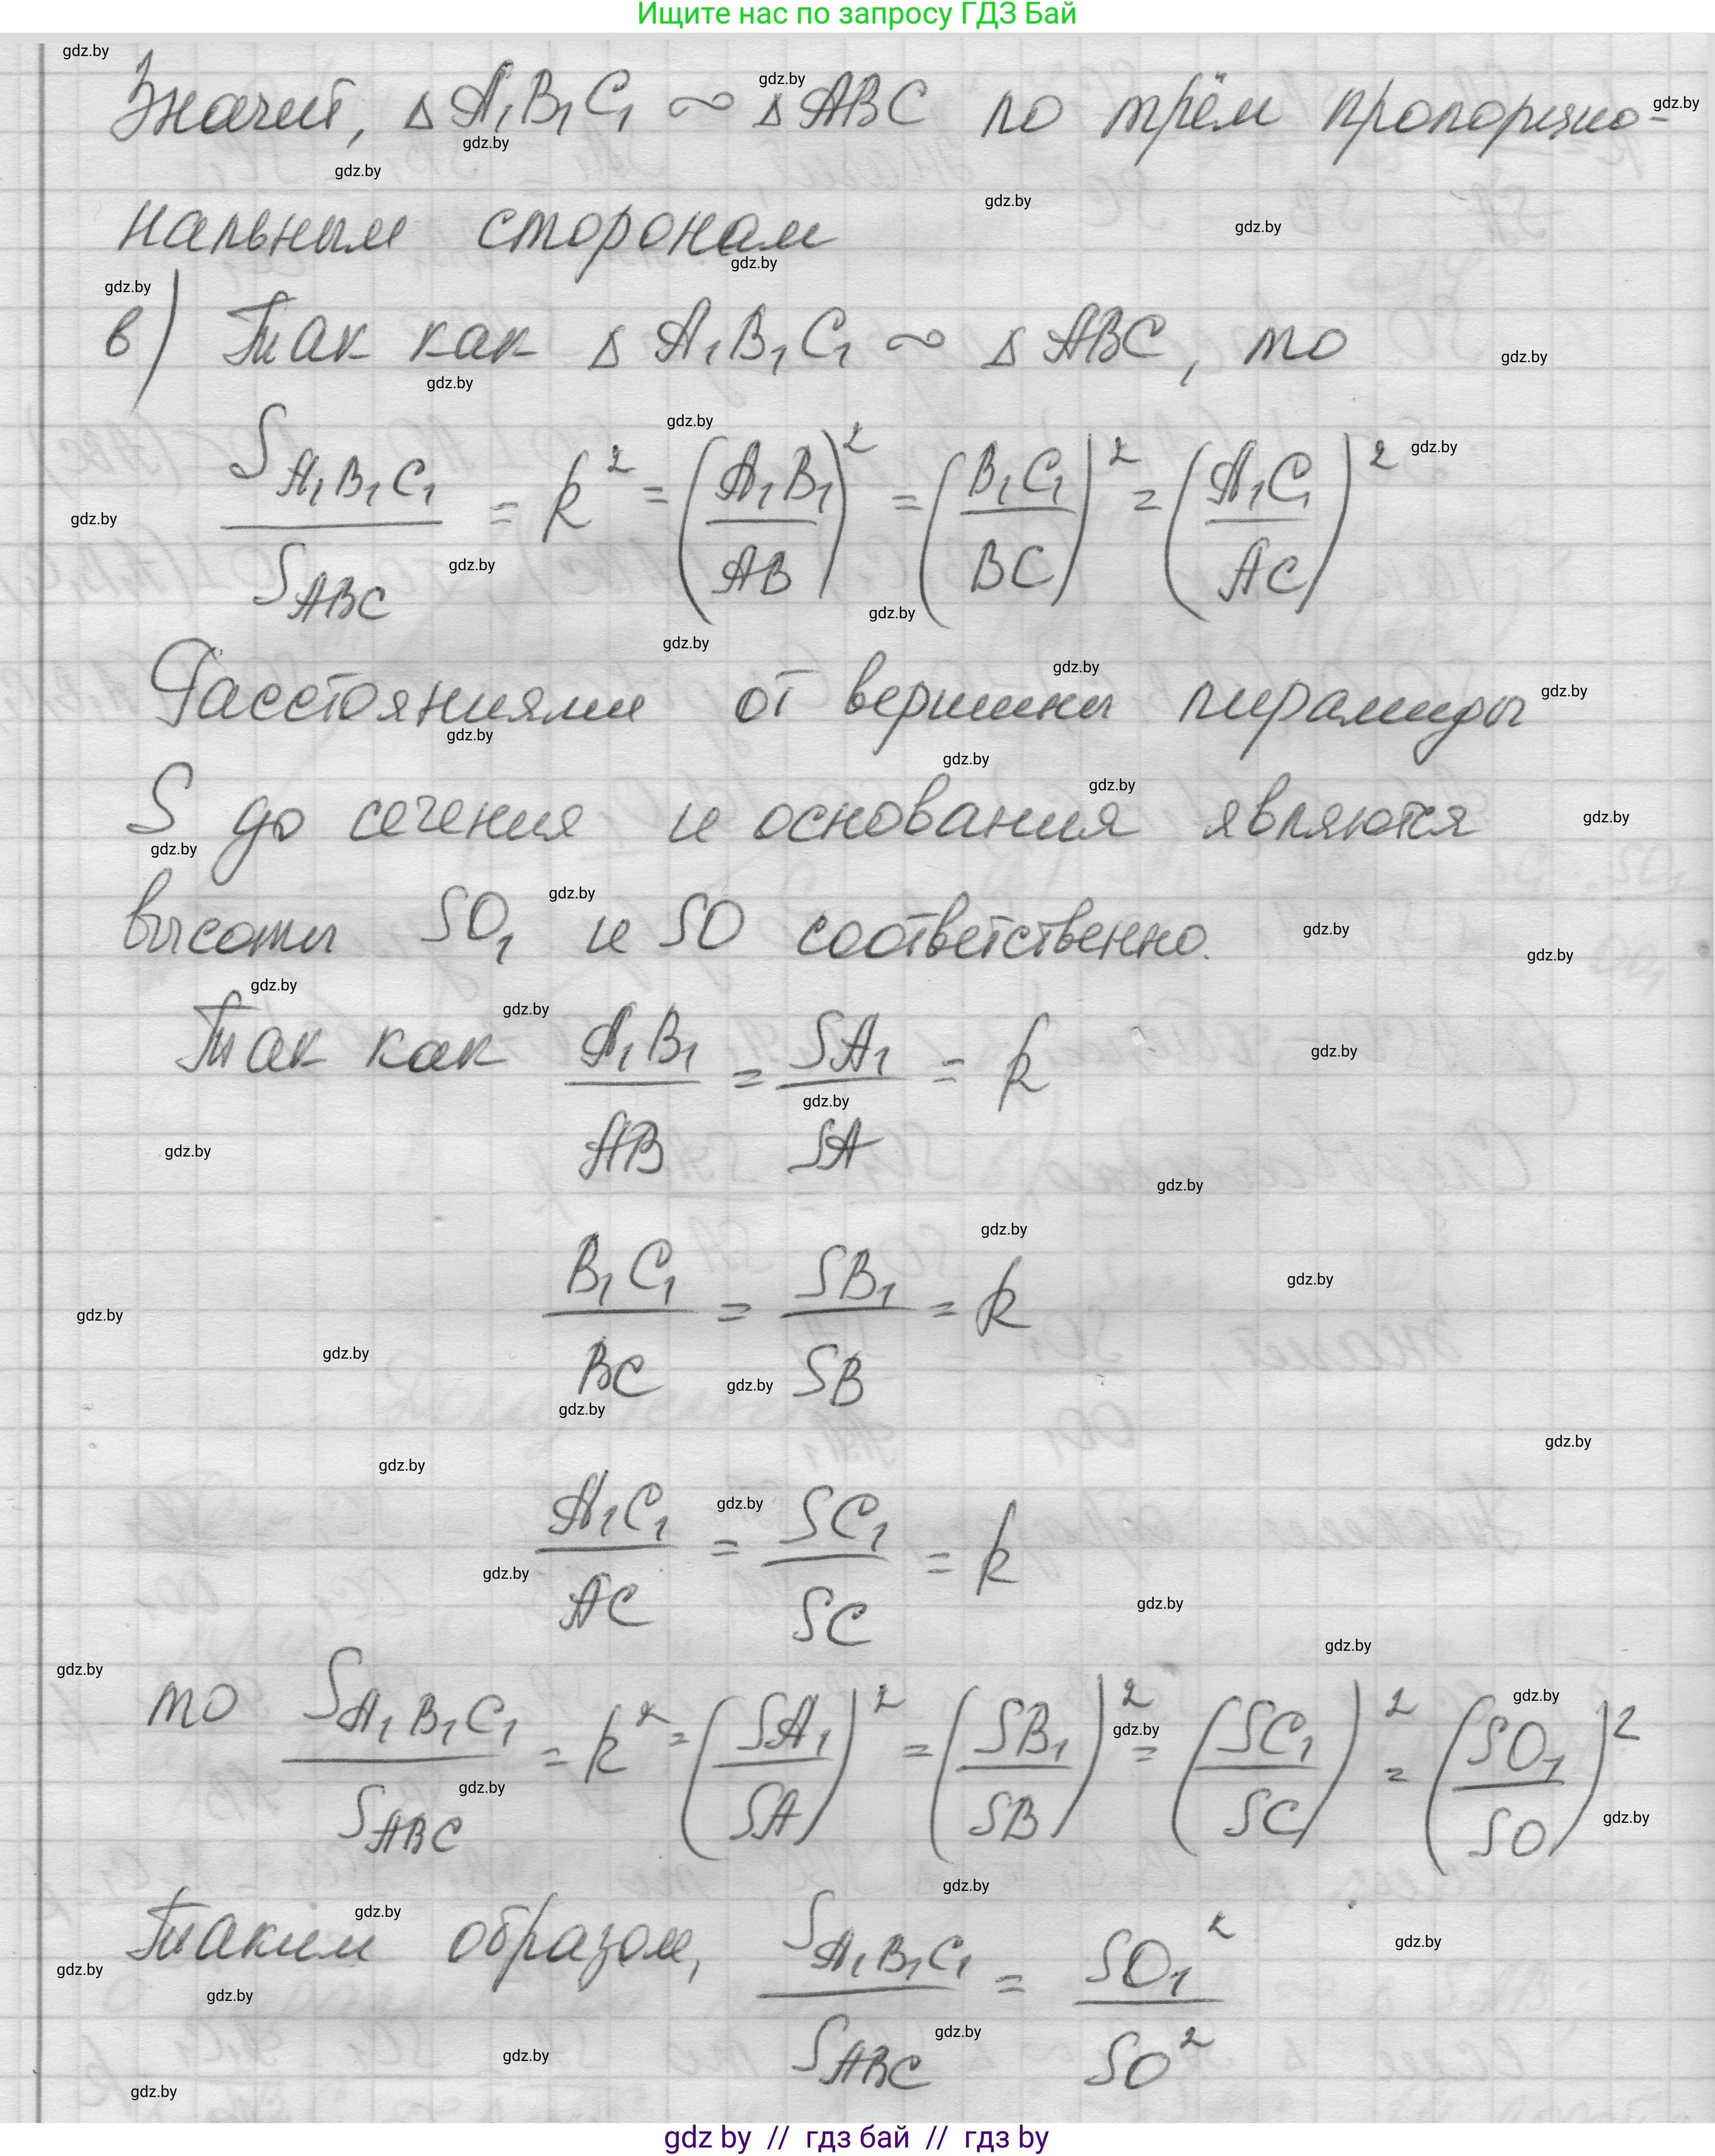 Ищите нас по запросу ГДЗ Бай
Значит, Δ A₁B₁C₁ ∾ Δ ABC по трём пропорцио-
нальным сторонам
в) Так как Δ A₁B₁C₁ ∾ Δ ABC, то
S_{A₁B₁C₁} / S_{ABC} = k² = (A₁B₁ / AB)² = (B₁C₁ / BC)² = (A₁C₁ / AC)²
Расстояниями от вершины пирамиды
S до сечения и основания являются
высоты SO₁ и SO соответственно.
Так как A₁B₁ / AB = SA₁ / SA = k
B₁C₁ / BC = SB₁ / SB = k
A₁C₁ / AC = SC₁ / SC = k
то S_{A₁B₁C₁} / S_{ABC} = k² = (SA₁ / SA)² = (SB₁ / SB)² = (SC₁ / SC)² = (SO₁ / SO)²
Таким образом, S_{A₁B₁C₁} / S_{ABC} = SO₁² / SO²
gdz by // гдз бай // гдз by